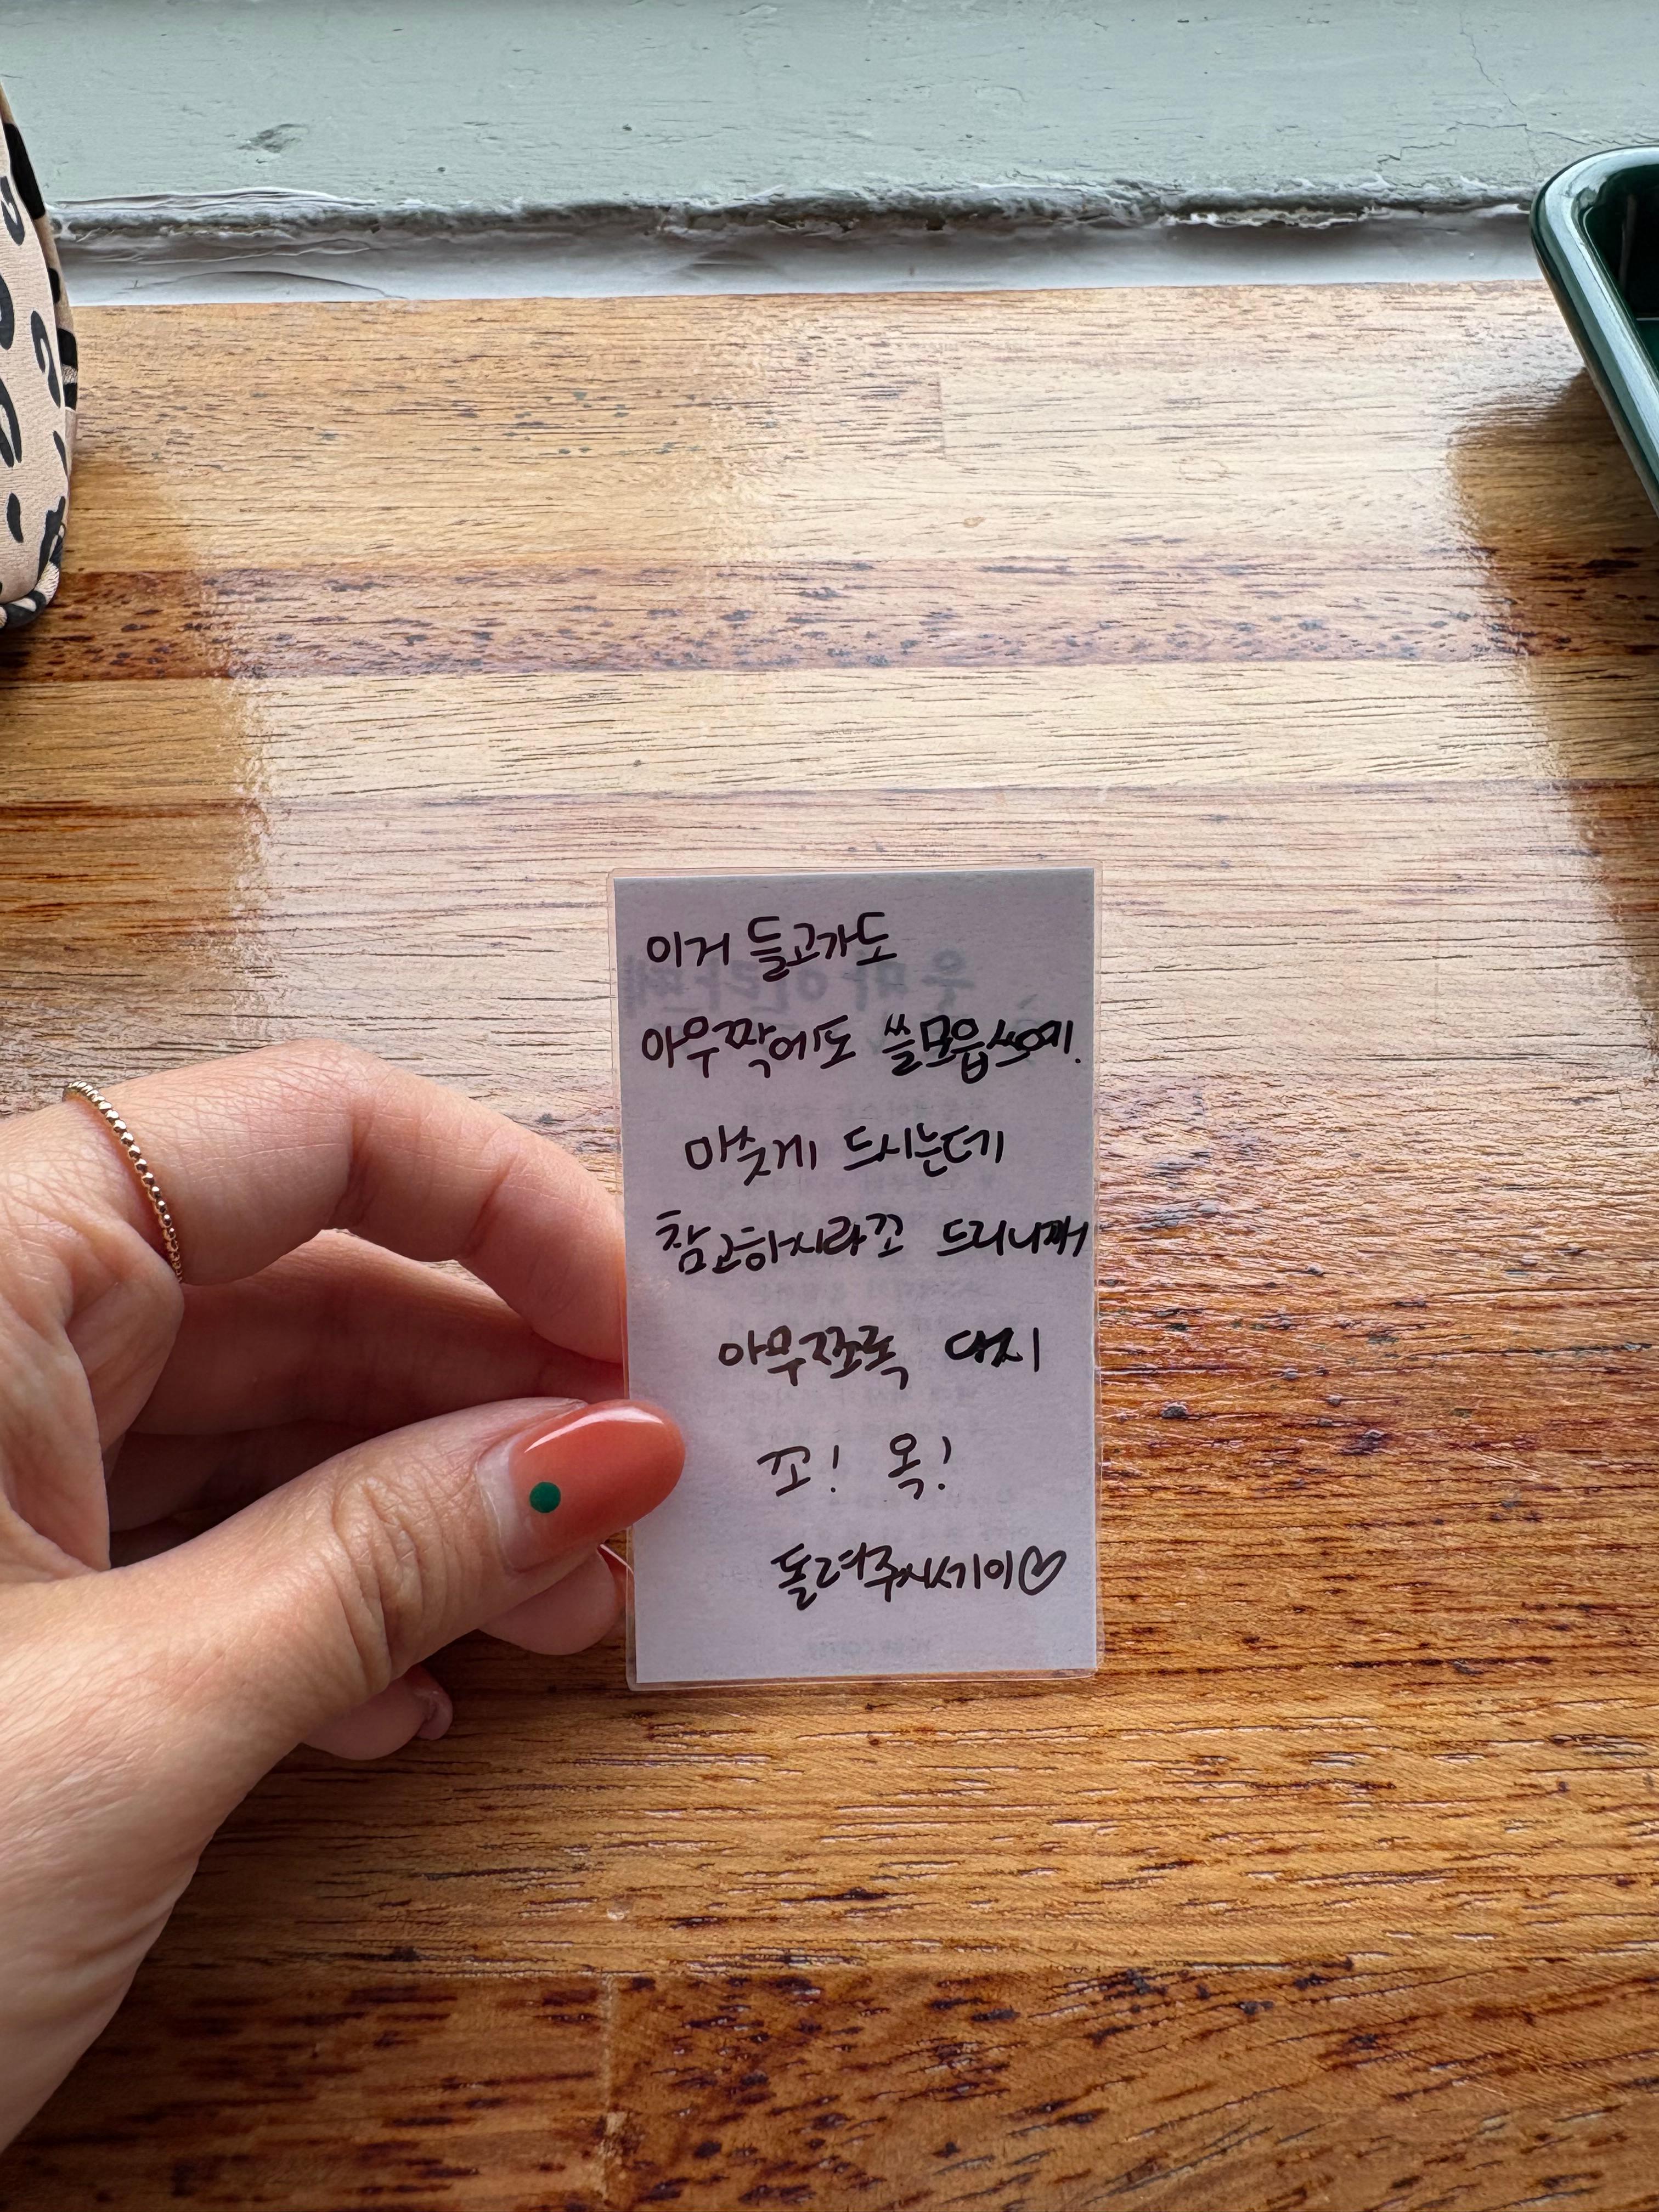 이거 들고가도
아무짝에도 쓸모읍쓰예.
마싯게 드시는데
참고하시라꼬 드리니까
아무쪼록 다시
꼬! 옥!
돌려주이시기이♡